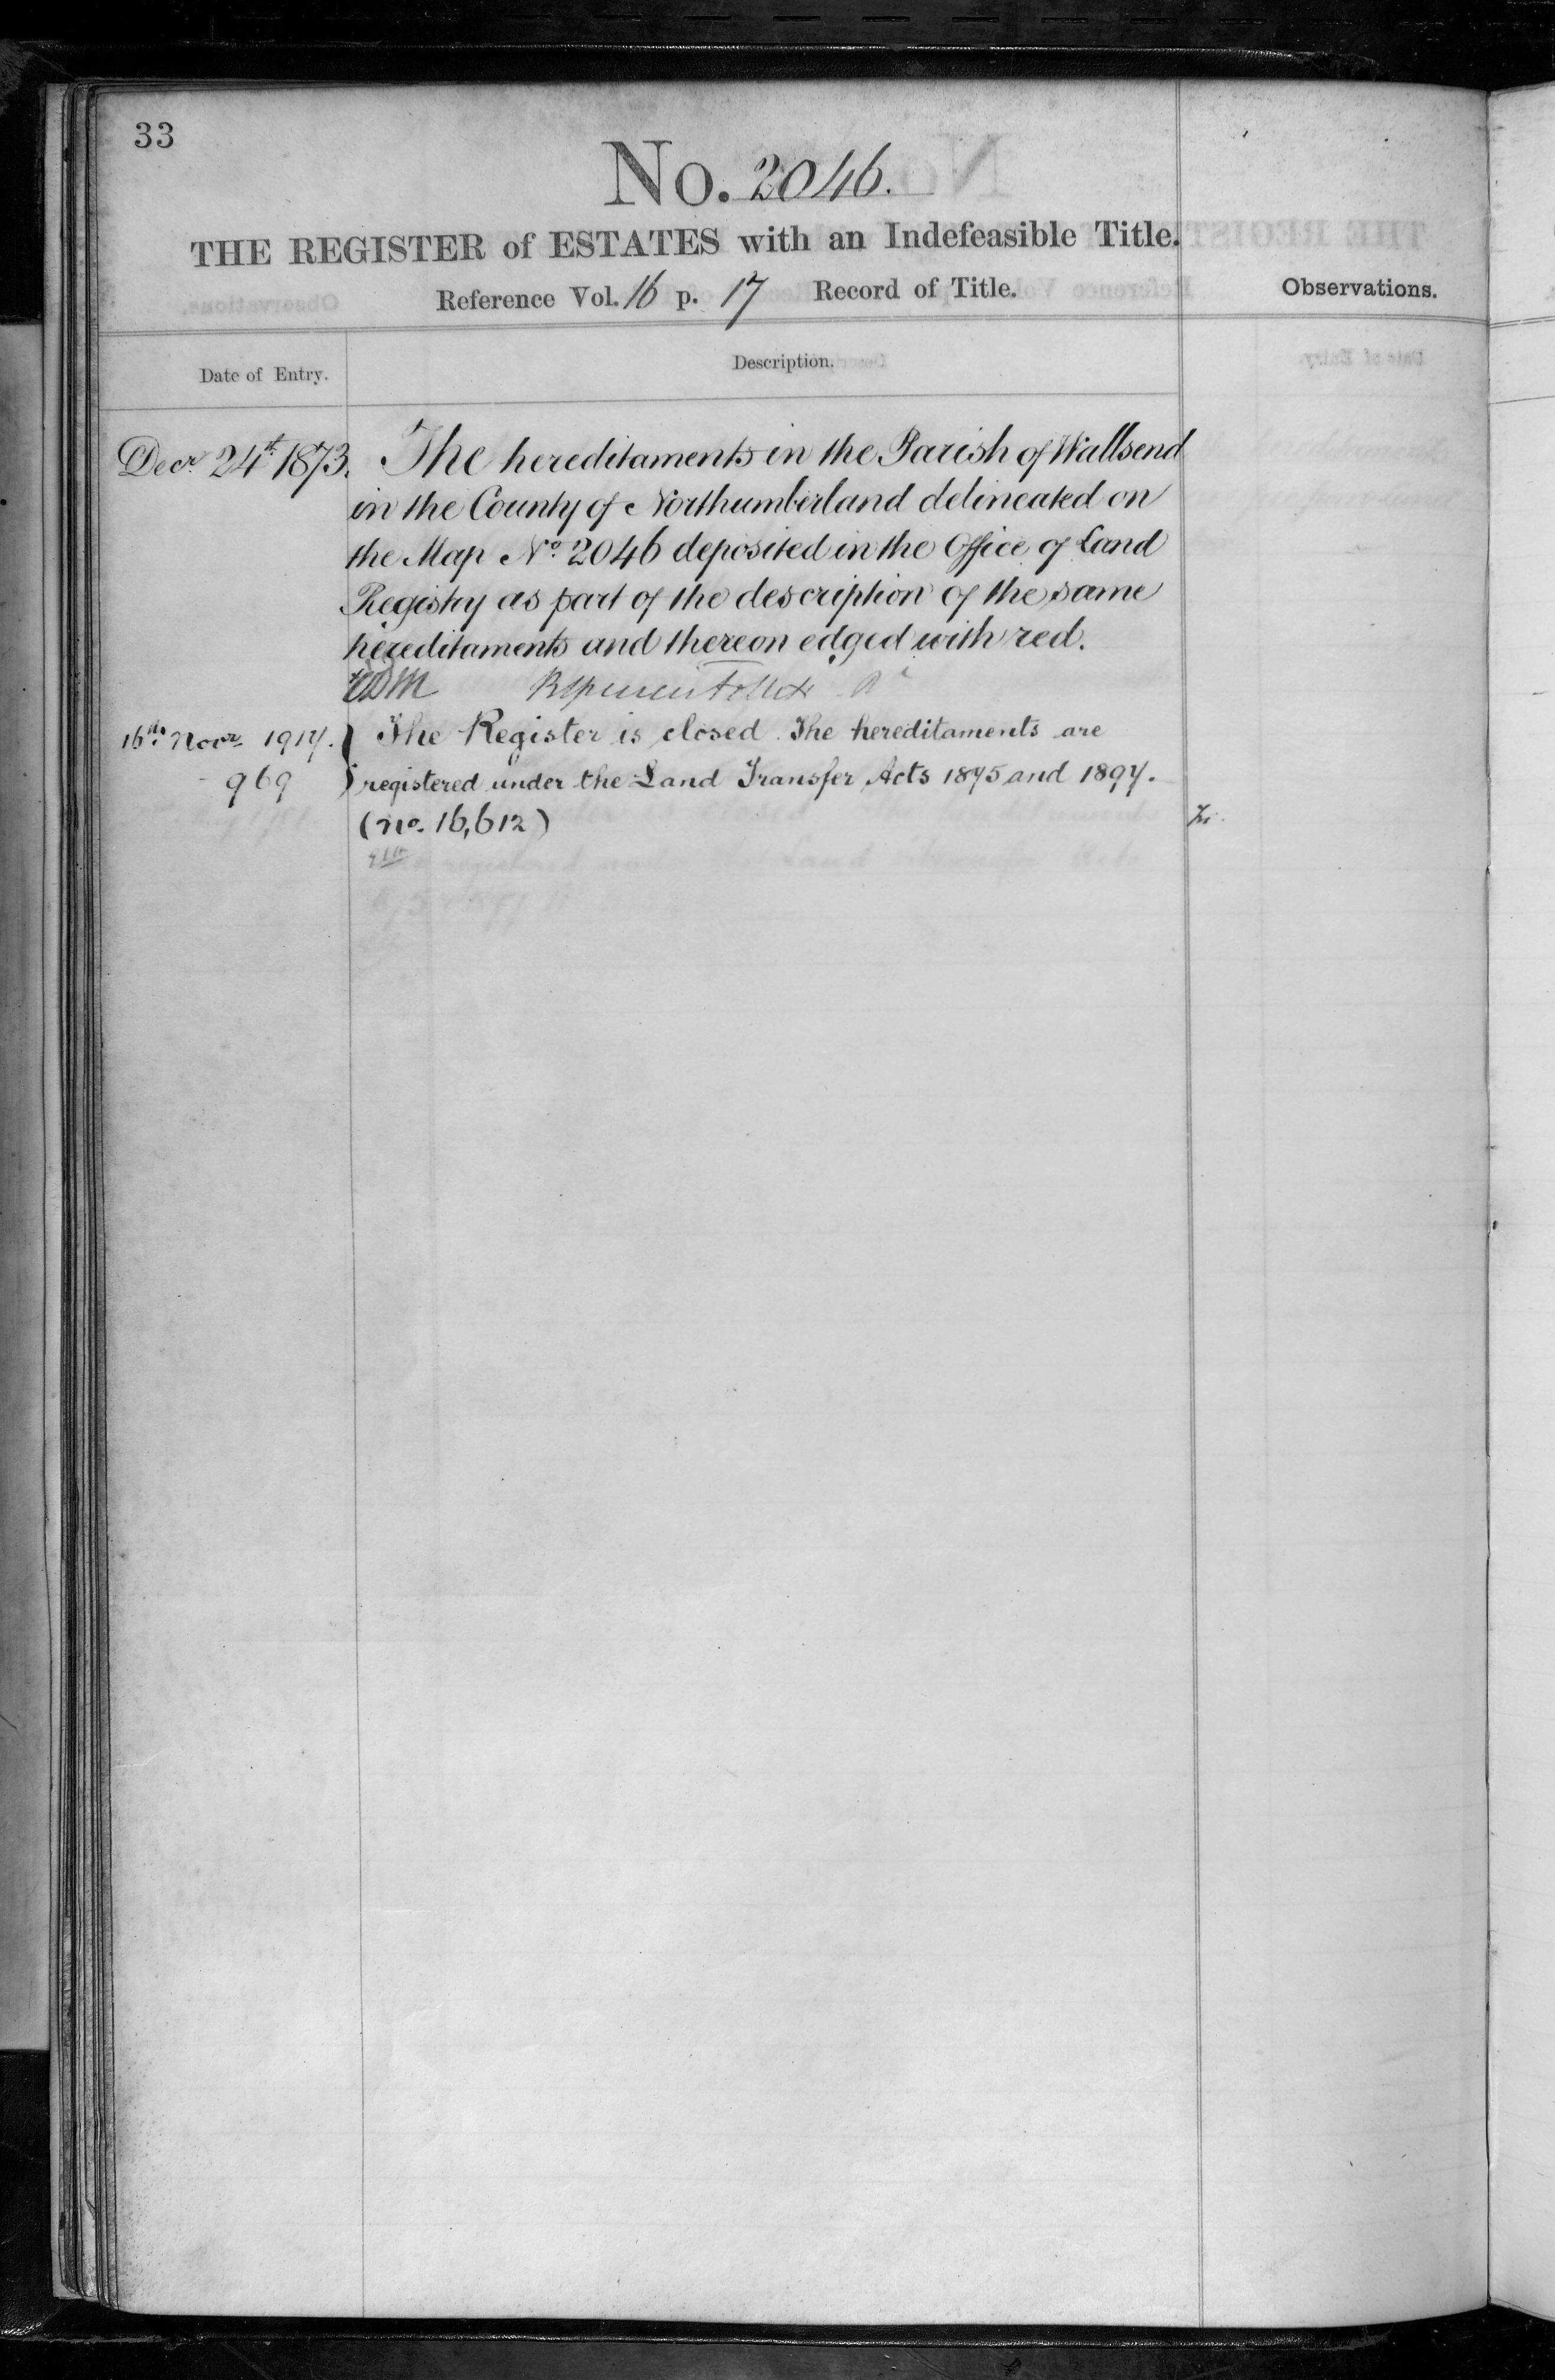 33
No. 2046.
THE REGISTER of ESTATES with an Indefeasible Title.
Reference Vol. 16 p. 17 Record of Title.
Observations.
Date of Entry.
Description.
Decr. 24th 1873. The hereditaments in the Parish of Wallsend
in the County of Northumberland delineated on
the Map No. 2046 deposited in the Office of Land
Registry as part of the description of the same
hereditaments and thereon edged with red.
16th Novr. 1917. The Register is closed. The hereditaments are
969 registered under the Land Transfer Acts 1875 and 1897.
(No. 16,612)